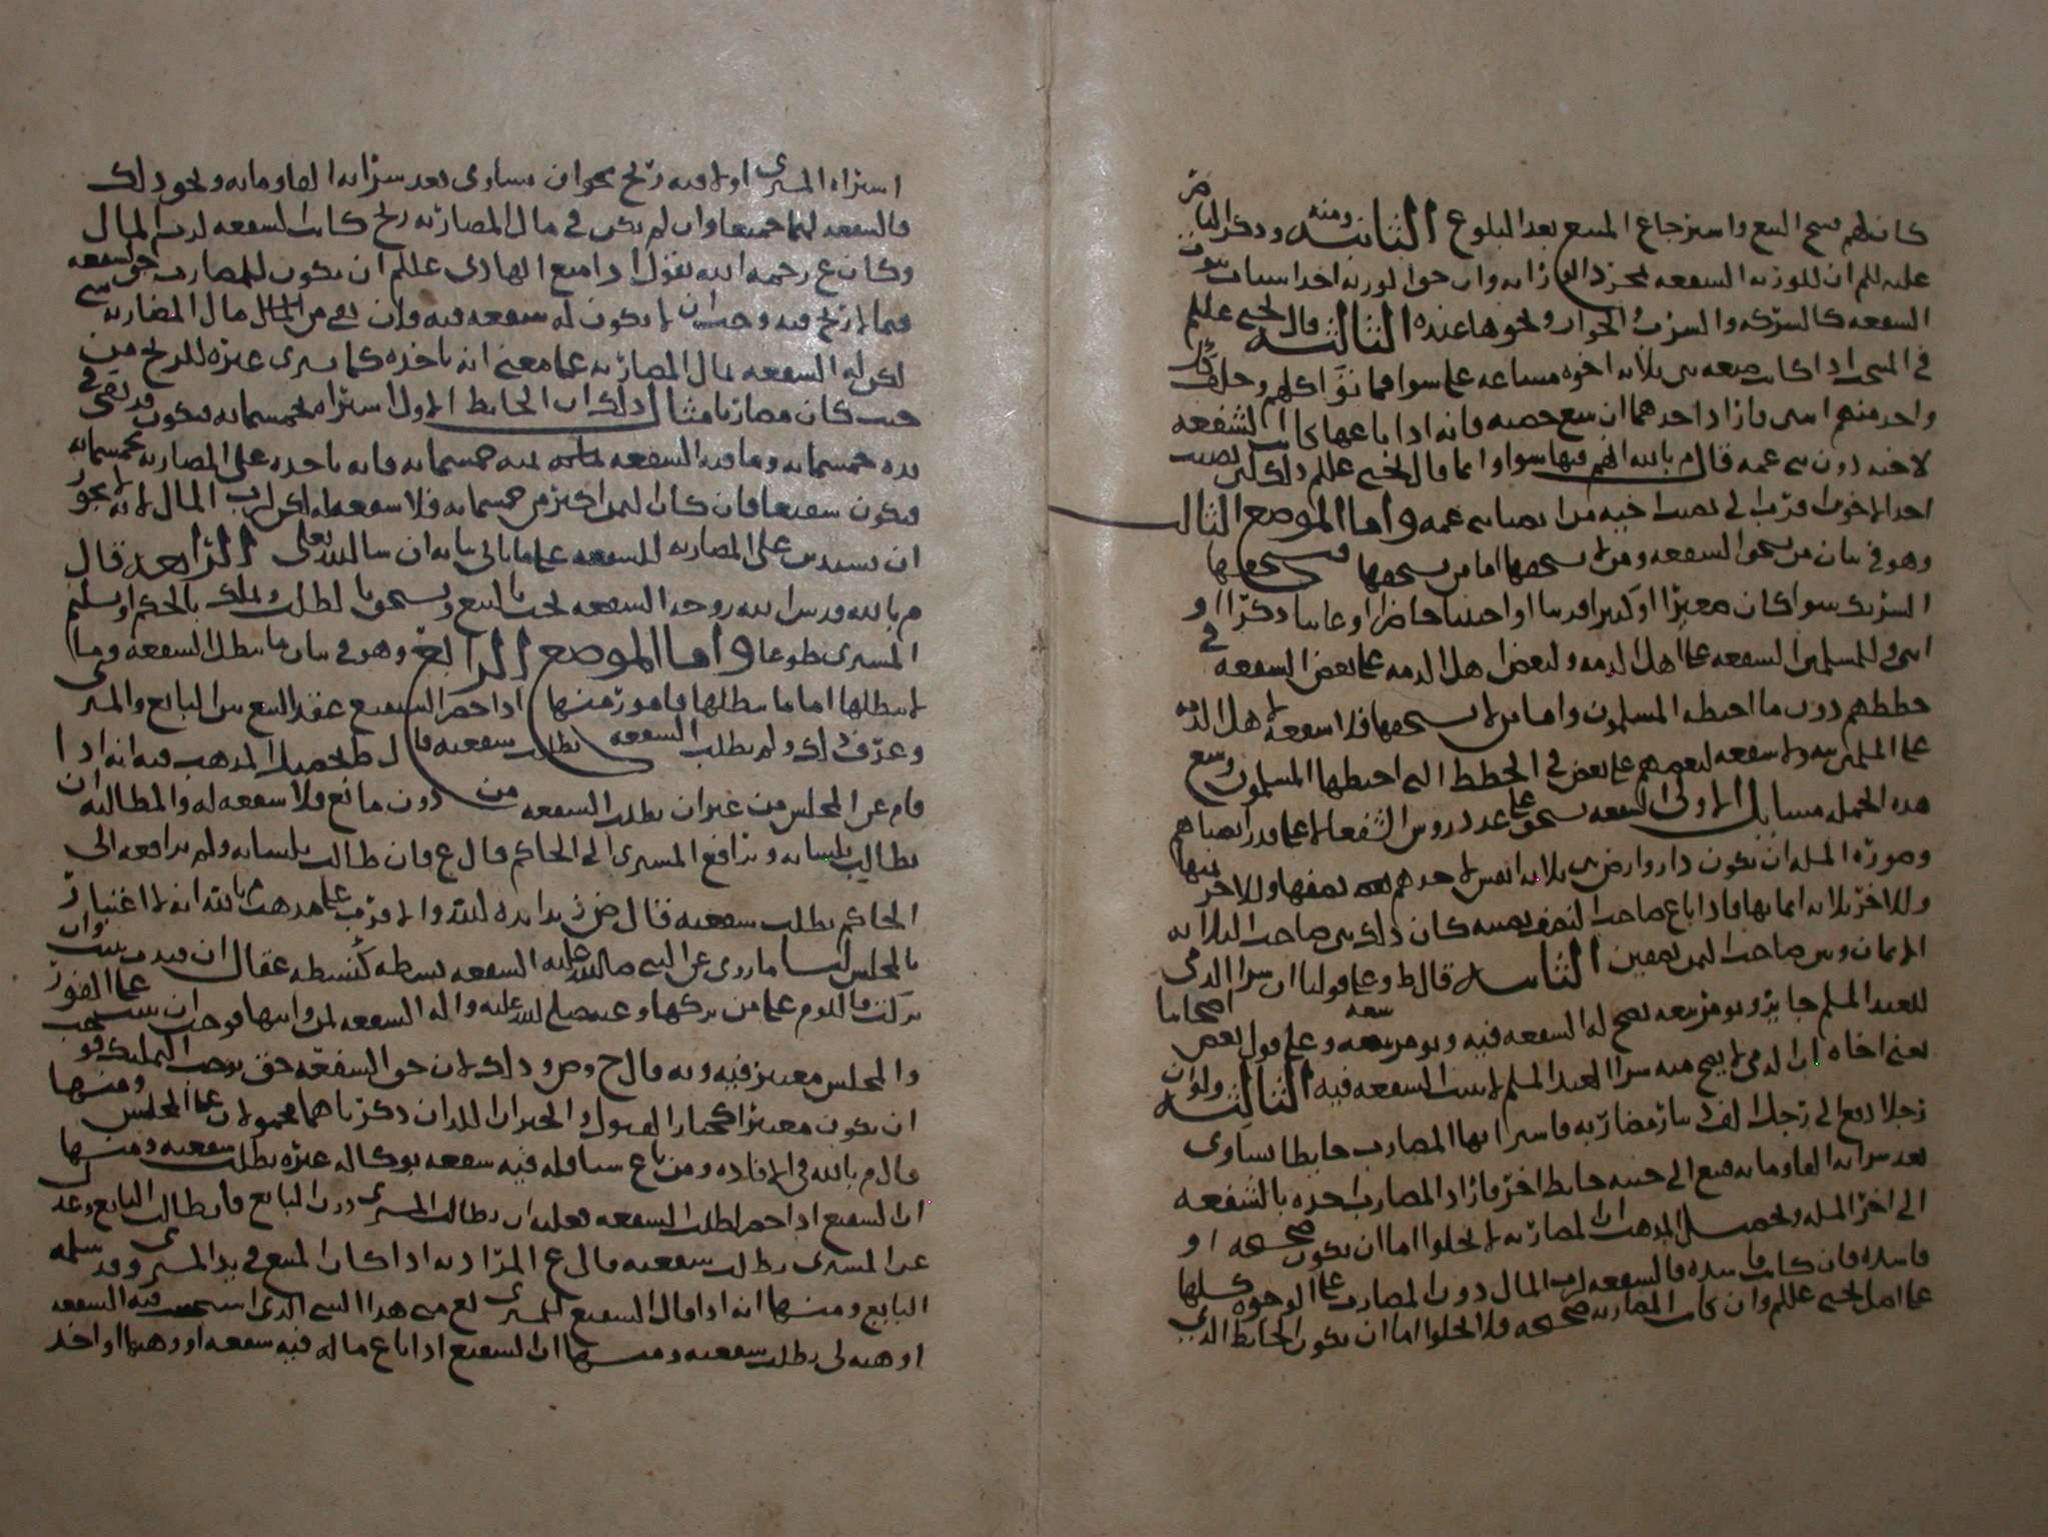 كان لهم فسخ البيع واسترجاع المبيع بعد البلوغ الثانية ومنه وذكر الناصر
عليه للم ان للورثه الشفعه بمجرد الوراثه وان حق الورثه احد اسباب ثبوت
الشفعه كالشركه والشرب والجوار ونحوها عنده الثالثة قال يحيى عللم
في المنتخب اذا كانت ضيعه بين ثلاثه اخوه مشاعه على سوا فماتوا كلهم وخلف كل
واحد منهم ابنين فاراد احدهما ان يبيع حصته فانه اذا باعها كانت الشفعه
لاخيه دون بني عمه قال م بالله انهم فيها سوا وانما قال يحيى عللم ذلك لان نصيب
احد الاخوين اقرب الى نصيب اخيه من انصبا بني عمه واما الموضع الثالث
وهو في بيان من يستحق الشفعه ومن لا يستحقها اما من يستحقها فيستحقها
الشريك سوا كان صغيرا او كبيرا قريبا او اجنبيا حاضرا او غايبا ذكرا او
انثى وللمسلمين الشفعه على اهل الذمه ولبعض اهل الذمه على بعض الشفعه في
خططهم دون ما اختطه المسلمون واما من لا يستحقها فلا شفعه لاهل الذمه
على المسلمين ولا شفعه لبعضهم على بعض في الخطط التي اختطها المسلمون وتتبع
هذه الجمله مسايل الاولى الشفعه تستحق على عدد روس الشفعا لا على قدر انصباهم
وصوره المسله ان تكون دار او ارض بين ثلاثه انفس لاحدهم نصفها وللاخر ثمنها
وللاخر ثلاثه اثمانها فاذا باع صاحب النصف نصيبه كان ذلك بين صاحب الثلاثه
الاثمان وبين صاحب الثمن نصفين الثانية قال ط وعلى قولنا ان شرا الذمي
للعبد المسلم جايز ويومر ببيعه تصح له الشفعه فيه ويومر ببيعه وعلى قول بعض اصحابنا
يعني اخاه ان الذمي لا يصح منه شرا العبد المسلم لا تثبت الشفعه فيه الثالثة ولو ان
رجلا دفع الى رجل الف دينار مضاربه فاشترا بها المضارب حايطا يساوي
بعد شرايه الفا ومايه فبيع الى جنبه حايط اخر فاراد المضارب اخذه بالشفعه
الى اخر المسله وتحصيل المذهب ان المضاربه لا تخلوا اما ان تكون صحيحه او
فاسده فان كانت فاسده فالشفعه لرب المال دون المضارب على الوجوه كلها
على اصل يحيى عللم وان كانت المضاربه صحيحه فلا تخلوا اما ان يكون الحايط الذي
اشتراه المشتري اولا فيه ربح نحو ان يساوي بعد شرايه الفا ومايه ونحو ذلك
فالشفعه لهما جميعا وان لم يكن في مال المضاربه ربح كانت الشفعه لرب المال
وكان ع رحمه الله يقول اذا منع الهادي عللم ان يكون للمضارب حق الشفعه
فيما لا ربح فيه وجب ان لا يكون له شفعه فيه فان بقي من المال مال المضاربه شي
لكن له الشفعه بمال المضاربه على معنى انه ياخذه كما يشري غيره للربح من
حيث كان مضاربا مثال ذلك ان الحايط الاول اشتراه بخمسمايه فيكون قد بقي في
يده خمسمايه وما فيه الشفعه ثمنه خمسمايه فانه ياخذه على المضاربه بخمسمايه
فيكون شفيعا فان كان الثمن اكثر من خمسمايه فلا شفعه له لكن لرب المال لانه لا يجوز
ان يستدين على المضاربه للشفعه على ما ياتي بيانه ان شا الله تعلى الرابعة قال
م بالله قدس الله روحه الشفعه تجب بالبيع وتستحق بالطلب وتملك بالحكم او تسليم
المشتري طوعا واما الموضع الرابع وهو في بيان ما يبطل الشفعه وما
لا يبطلها اما ما يبطلها فامور منها اذا حضر الشفيع عقد البيع بين البايع والمشتري
وعرف ذلك ولم يطلب الشفعه بطلت شفعته قال ط تحصيل المذهب فيه انه اذا
قام عن المجلس من غير ان يطلب الشفعه من دون مانع فلا شفعه له والمطالبه ان
يطالب بلسانه ويرافع المشتري الى الحاكم قال ع فان طالب بلسانه ولم يرافعه الى
الحاكم بطلت شفعته قال ض زيد ايده الله والاقرب على مذهب م بالله انه لا اعتبار
بالمجلس لنا ما روي عن النبي صلى الله عليه الشفعه نشطه كنشطه عقال ان قيدت ثبتت وان
تركت فاللوم على من تركها وعنه صلى الله عليه واله الشفعه لمن واثبها فوجب ان تستحب على الفور
والمجلس معتبر فيه وبه قال ح وص وذلك لان حق الشفعه حق يوجب التمليك فو
ان يكون معتبرا كخيار القبول والخبران اللذان ذكرناهما محمولان على المجلس ومنها
قال م بالله في الافاده ومن باع شيا فله فيه شفعه بوكاله غيره بطلت شفعته ومنها
ان الشفيع اذا حضر لطلب الشفعه فعليه ان يطالب المشتري دون البايع فان طالب البايع وعد
عن المشتري بطلت شفعته قال ع المراد به اذا كان المبيع في يد المشتري وقد سلمه
البايع ومنها انه اذا قال الشفيع للمشتري بع مني هذا الشي الذي استحق فيه الشفعه
او هبه لي بطلت شفعته ومنها ان الشفيع اذا باع ما له فيه شفعه او وهبها او اخذ